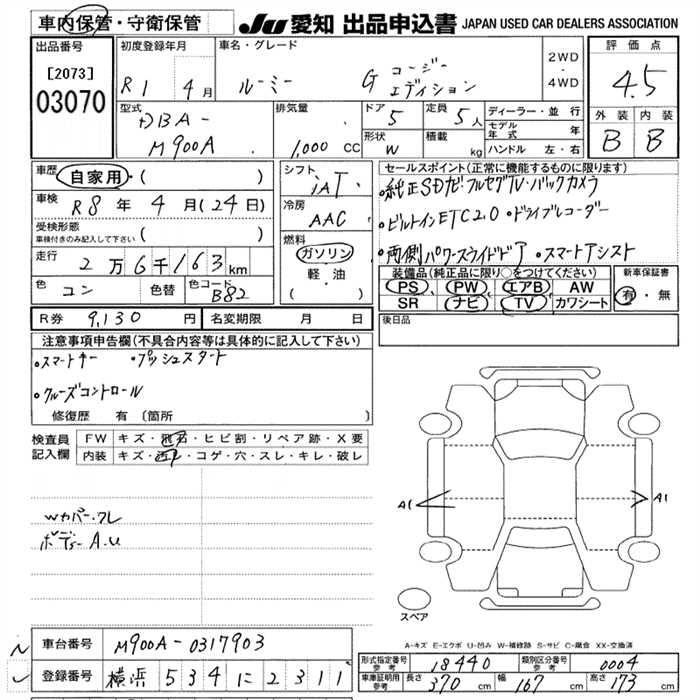 車内保管・守衛保管
JU 愛知 出品申込書 JAPAN USED CAR DEALERS ASSOCIATION
出品番号
[2073]
03070
初度登録年月
R1 4月
車名・グレード
ルーミー G コージーエディション
2WD
・
4WD
評価点
4.5
外装 内装
B B
型式
DBA-
M900A
排気量
1,000 CC
ドア 5
定員 5人
形状 W
積載 kg
ディーラー・並行
モデル年式 年
ハンドル 左・右
車歴 自家用・( )
車検 R8年4月(24日)
受検形態
車検付きのみ記入して下さい ( )
走行 2万6千163km
色 コン 色替 色コード B82
シフト IAT
冷房 AAC
燃料
ガソリン
軽・油
( )
セールスポイント(正常に機能するものに限ります)
・純正SDナビ・フルセグTV・バックカメラ
・ビルトインETC2.0 ・ドライブレコーダー
・両側パワースライドドア ・スマートアシスト
装備品(純正品に限り○をつけてください)
PS PW エアB AW
SR ナビ TV カワシート
新車保証書
有・無
R券 9,130円 名変期限 月 日
後日品
注意事項申告欄(不具合内容等は具体的に記入して下さい)
・スマートキー ・プッシュスタート
・クルーズコントロール
修復歴 有 〔箇所 〕
検査員記入欄
FW キズ・飛石・ヒビ割・リペア跡・X要
内装 キズ・汚レ・コゲ・穴・スレ・キレ・破レ
Wカバーワレ
ボディーA.U
A1 A1
スペア
A-キズ E-エクボ U-凹み W-補修跡 S-サビ C-腐食 XX-交換済
車台番号 M900A-0317903
登録番号 横浜 534 に 2311
形式指定番号 参考 18440 類別区分番号 参考 0004
車庫証明用 参考 長さ 370cm 幅 167cm 高さ 173cm